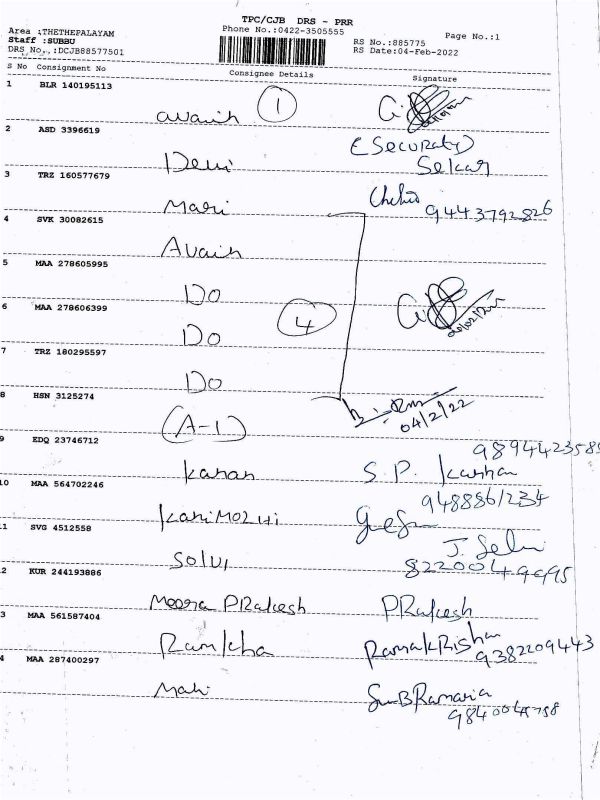 TPC/CJB DRS - PRR
Area :THETHEPALAYAM Phone No.:0422-3505555 Page No.:1
Staff :SUBBU RS No.:885775
DRS No.,:DCJB88577501 RS Date:04-Feb-2022
S No Consignment No Consignee Details Signature
1 BLR 140195113
avanish 1
2 ASD 3396619 (Security)
Devi Sekar
3 TRZ 160577679
Mari 9443792826
4 SVK 30082615
Avanish
5 MAA 278605995
Do
6 MAA 278606399 4
Do
7 TRZ 180295597
Do
8 HSN 3125274 04/2/22
(A-1)
9 EDQ 23746712 9894423585
Kanan S.P.
10 MAA 564702246 948886/234
KaniMOZHi
11 SVG 4512558 J. Selvi
Solvi 8220049995
2 KUR 244193886
Meera PRakesh PRakesh
3 MAA 561587404
Ramkha RamakRisha 9382209443
4 MAA 287400297
Mahi SuBRamania